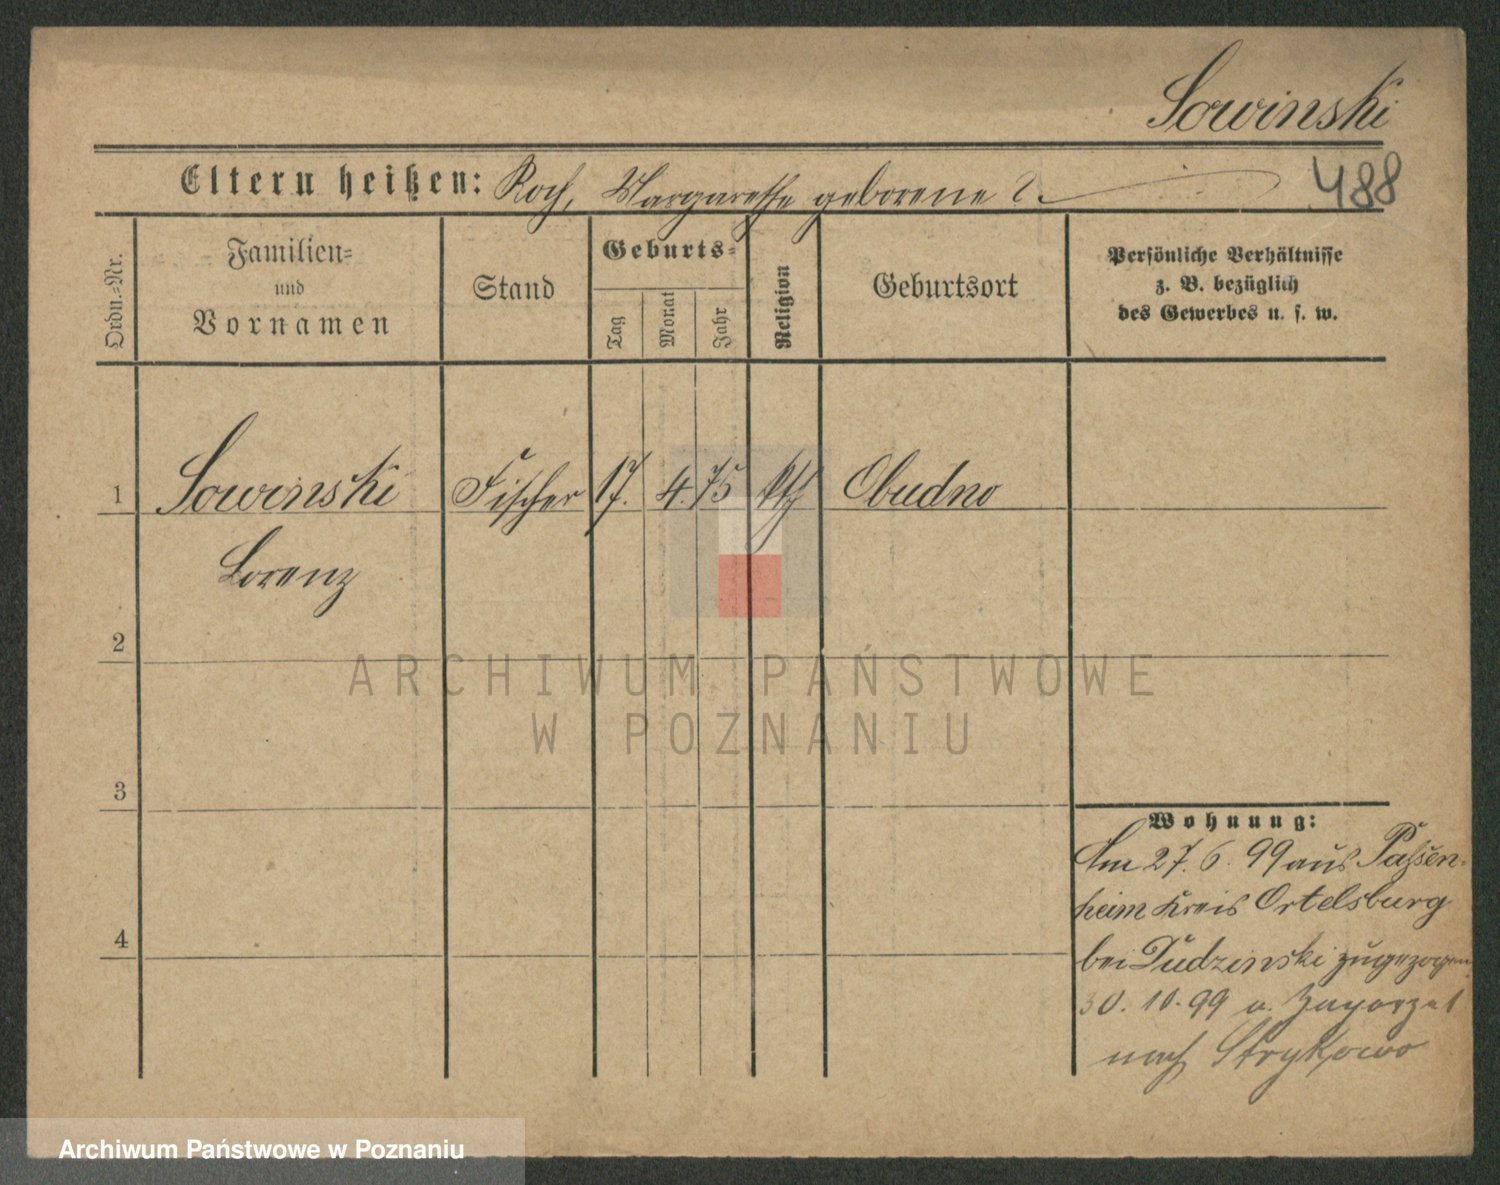 Sowinski
Eltern heißen: Roch, Margarethe geborene ?.
488
Ordn.-Nr.
Familien-
und
Vornamen
Stand
Geburts-
Tag
Monat
Jahr
Religion
Geburtsort
Persönliche Verhältnisse
z. B. bezüglich
des Gewerbes u. s. w.
1 Sowinski Fischer 17. 4. 75 kth Obudno
Lorenz
2
3
4
Wohnung:
Am 27. 6. 99 aus Passen-
heim Kreis Ortelsburg
bei Dudzinski zugezogen
30. 10. 99 a.
nach Strykowo
ARCHIWUM PAŃSTWOWE
W POZNANIU
Archiwum Państwowe w Poznaniu